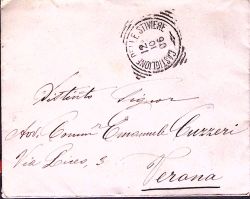 CASTIGLIONE DELLE STIVIERE
12
10
06
Distinto Signor
Avv. Comm. Emanuele Cuzzeri
Via Liceo, 3
Verona